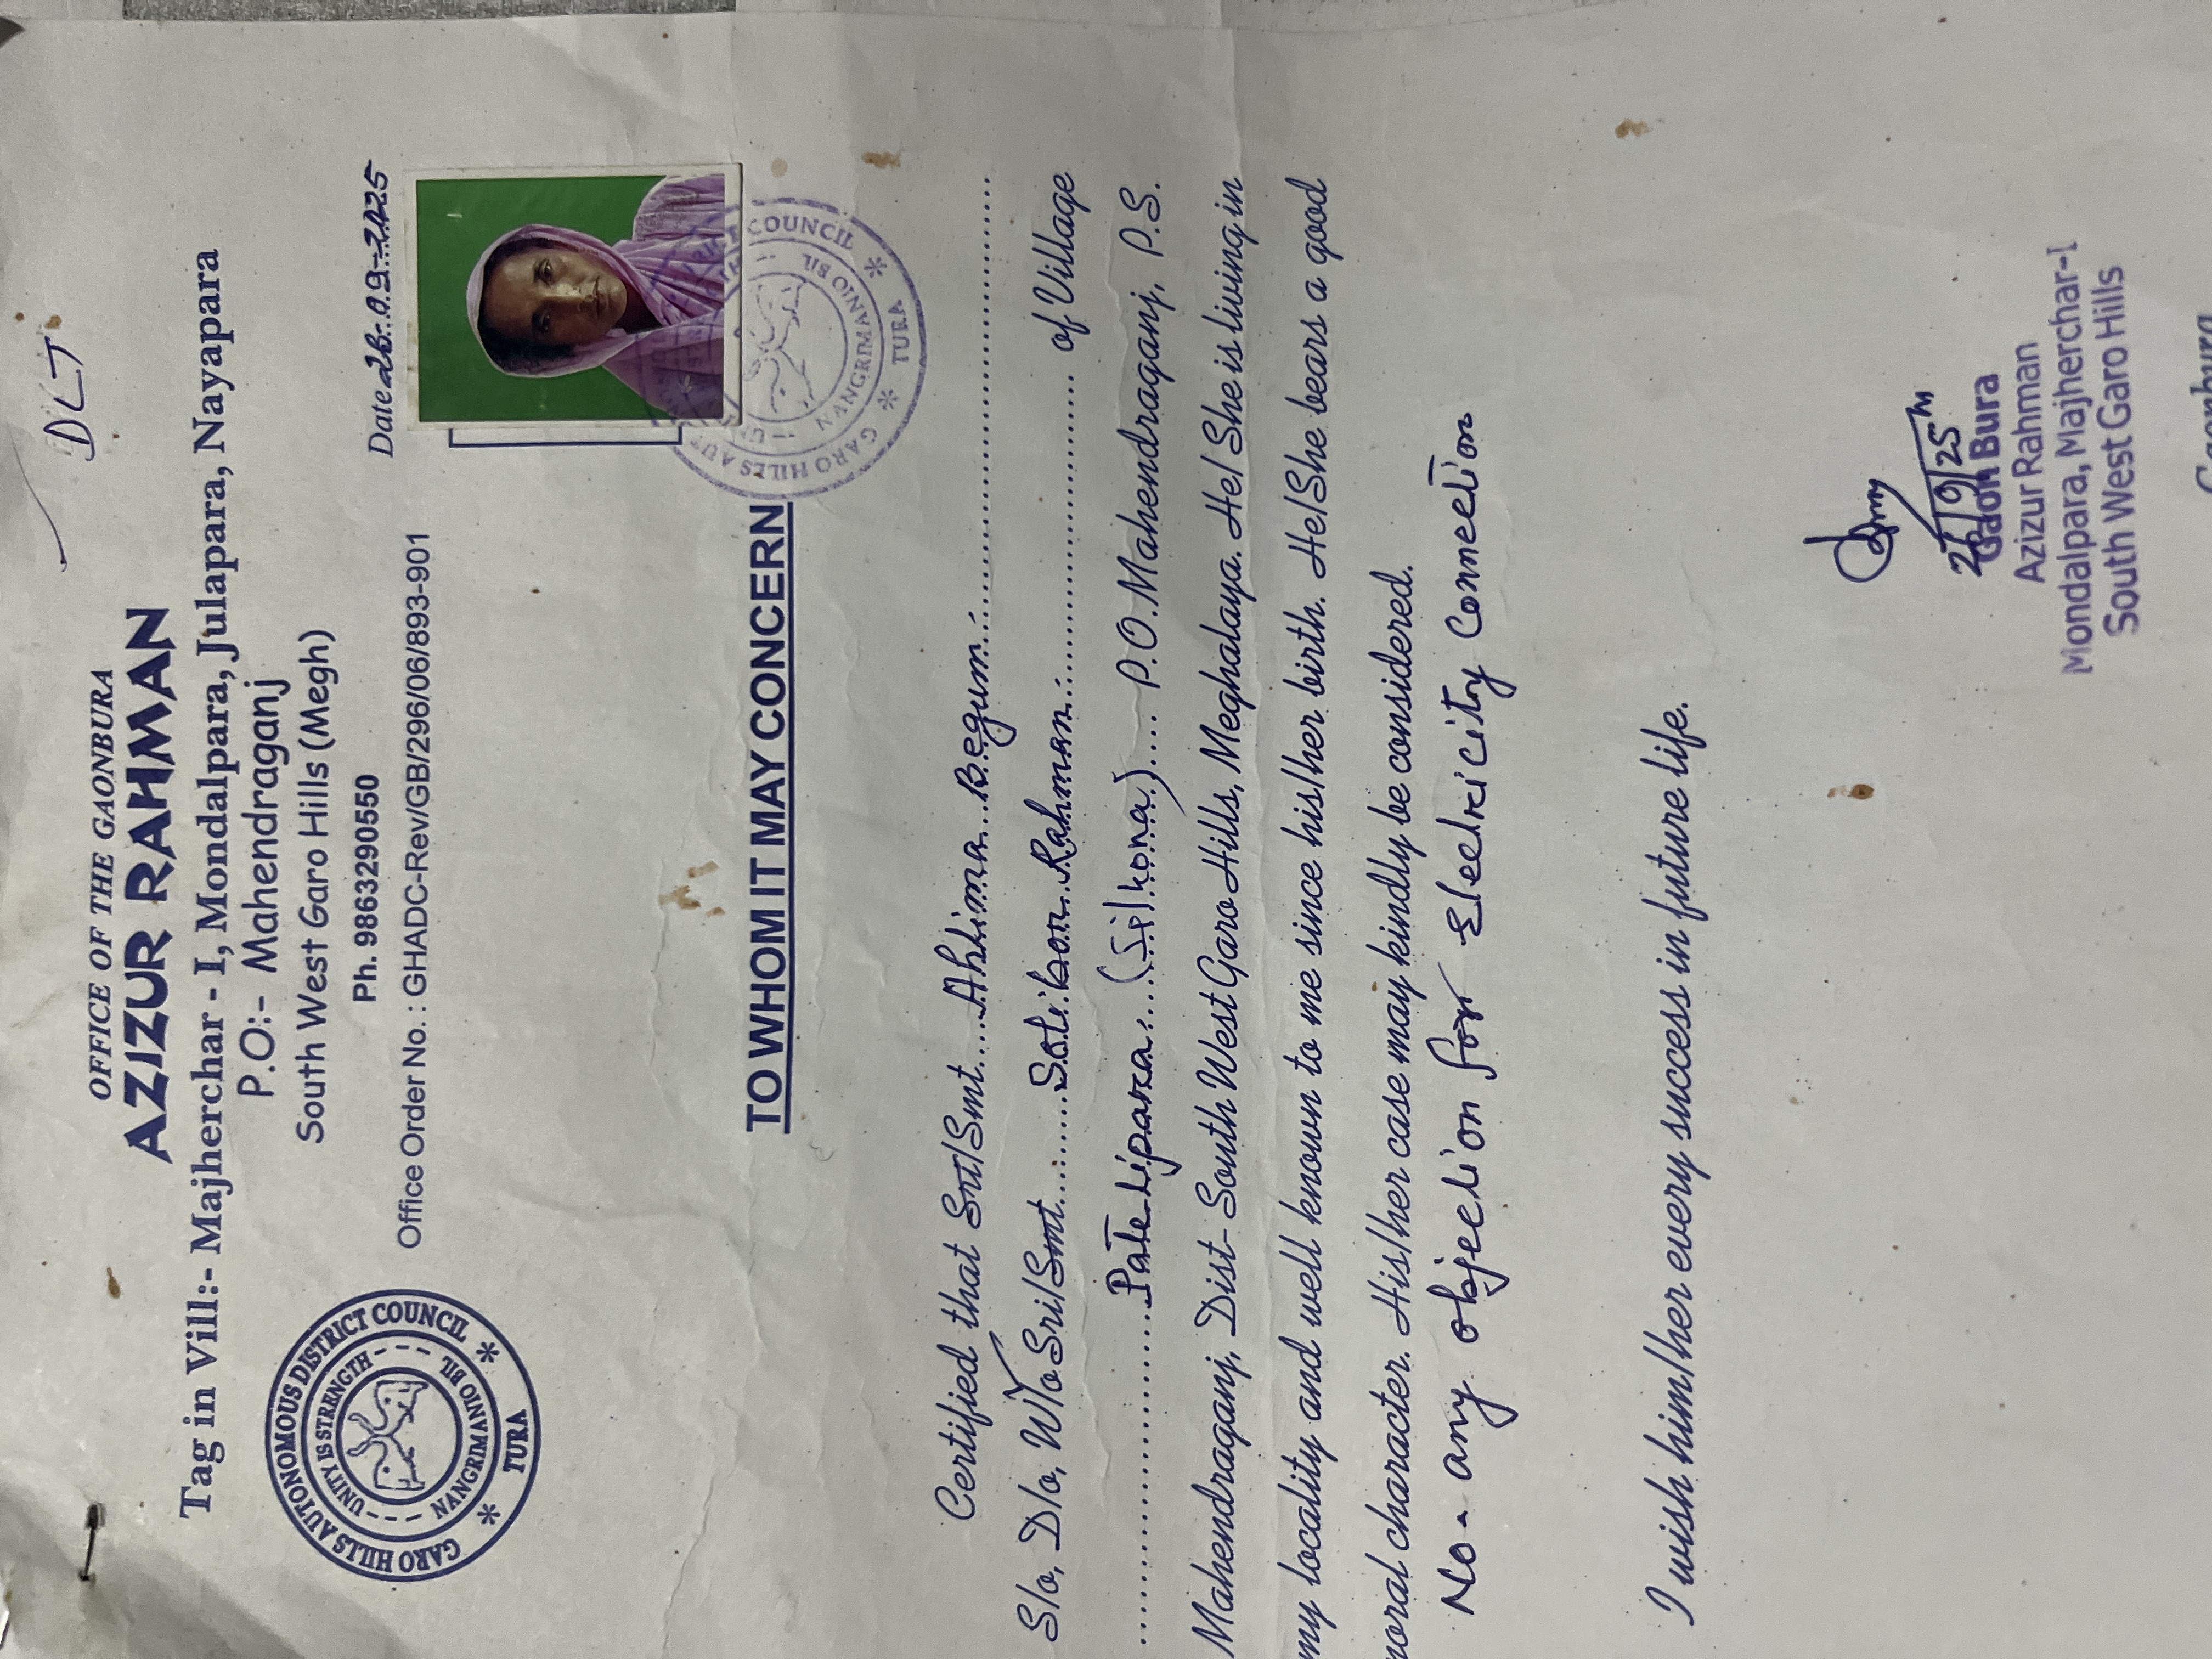 DLT
OFFICE OF THE GAONBURA
AZIZUR RAHMAN
Tag in Vill:- Majherchar - I, Mondalpara, Julapara, Nayapara
P.O:- Mahendraganj
South West Garo Hills (Megh)
Ph. 9863290550
Office Order No. : GHADC-Rev/GB/296/06/893-901
Date 26.09.2025
GARO HILLS AUTONOMOUS DISTRICT COUNCIL
UNITY IS STRENGTH
NANGRIMANNO BIL
* TURA *
COUNCIL
NANGRIMANNO BIL
GARO HILLS AUT
* TURA *
TO WHOM IT MAY CONCERN
Certified that Sri/Smt....Ahlima Begum
S/o, D/o, W/o Sri/Smt. Rahman of Village
(Silkona).... P.O. Mahendraganj, P.S.
Mahendraganj, Dist- South West Garo Hills, Meghalaya. He/ She is living in
my locality and well known to me since his/her birth. He/She bears a good
moral character. His/her case may kindly be considered.
No- any objection for Electricity Connection
I wish him/her every success in future life.
26/9/25
Gaon Bura
Azizur Rahman
Mondalpara, Majherchar-I
South West Garo Hills
Gaonbura